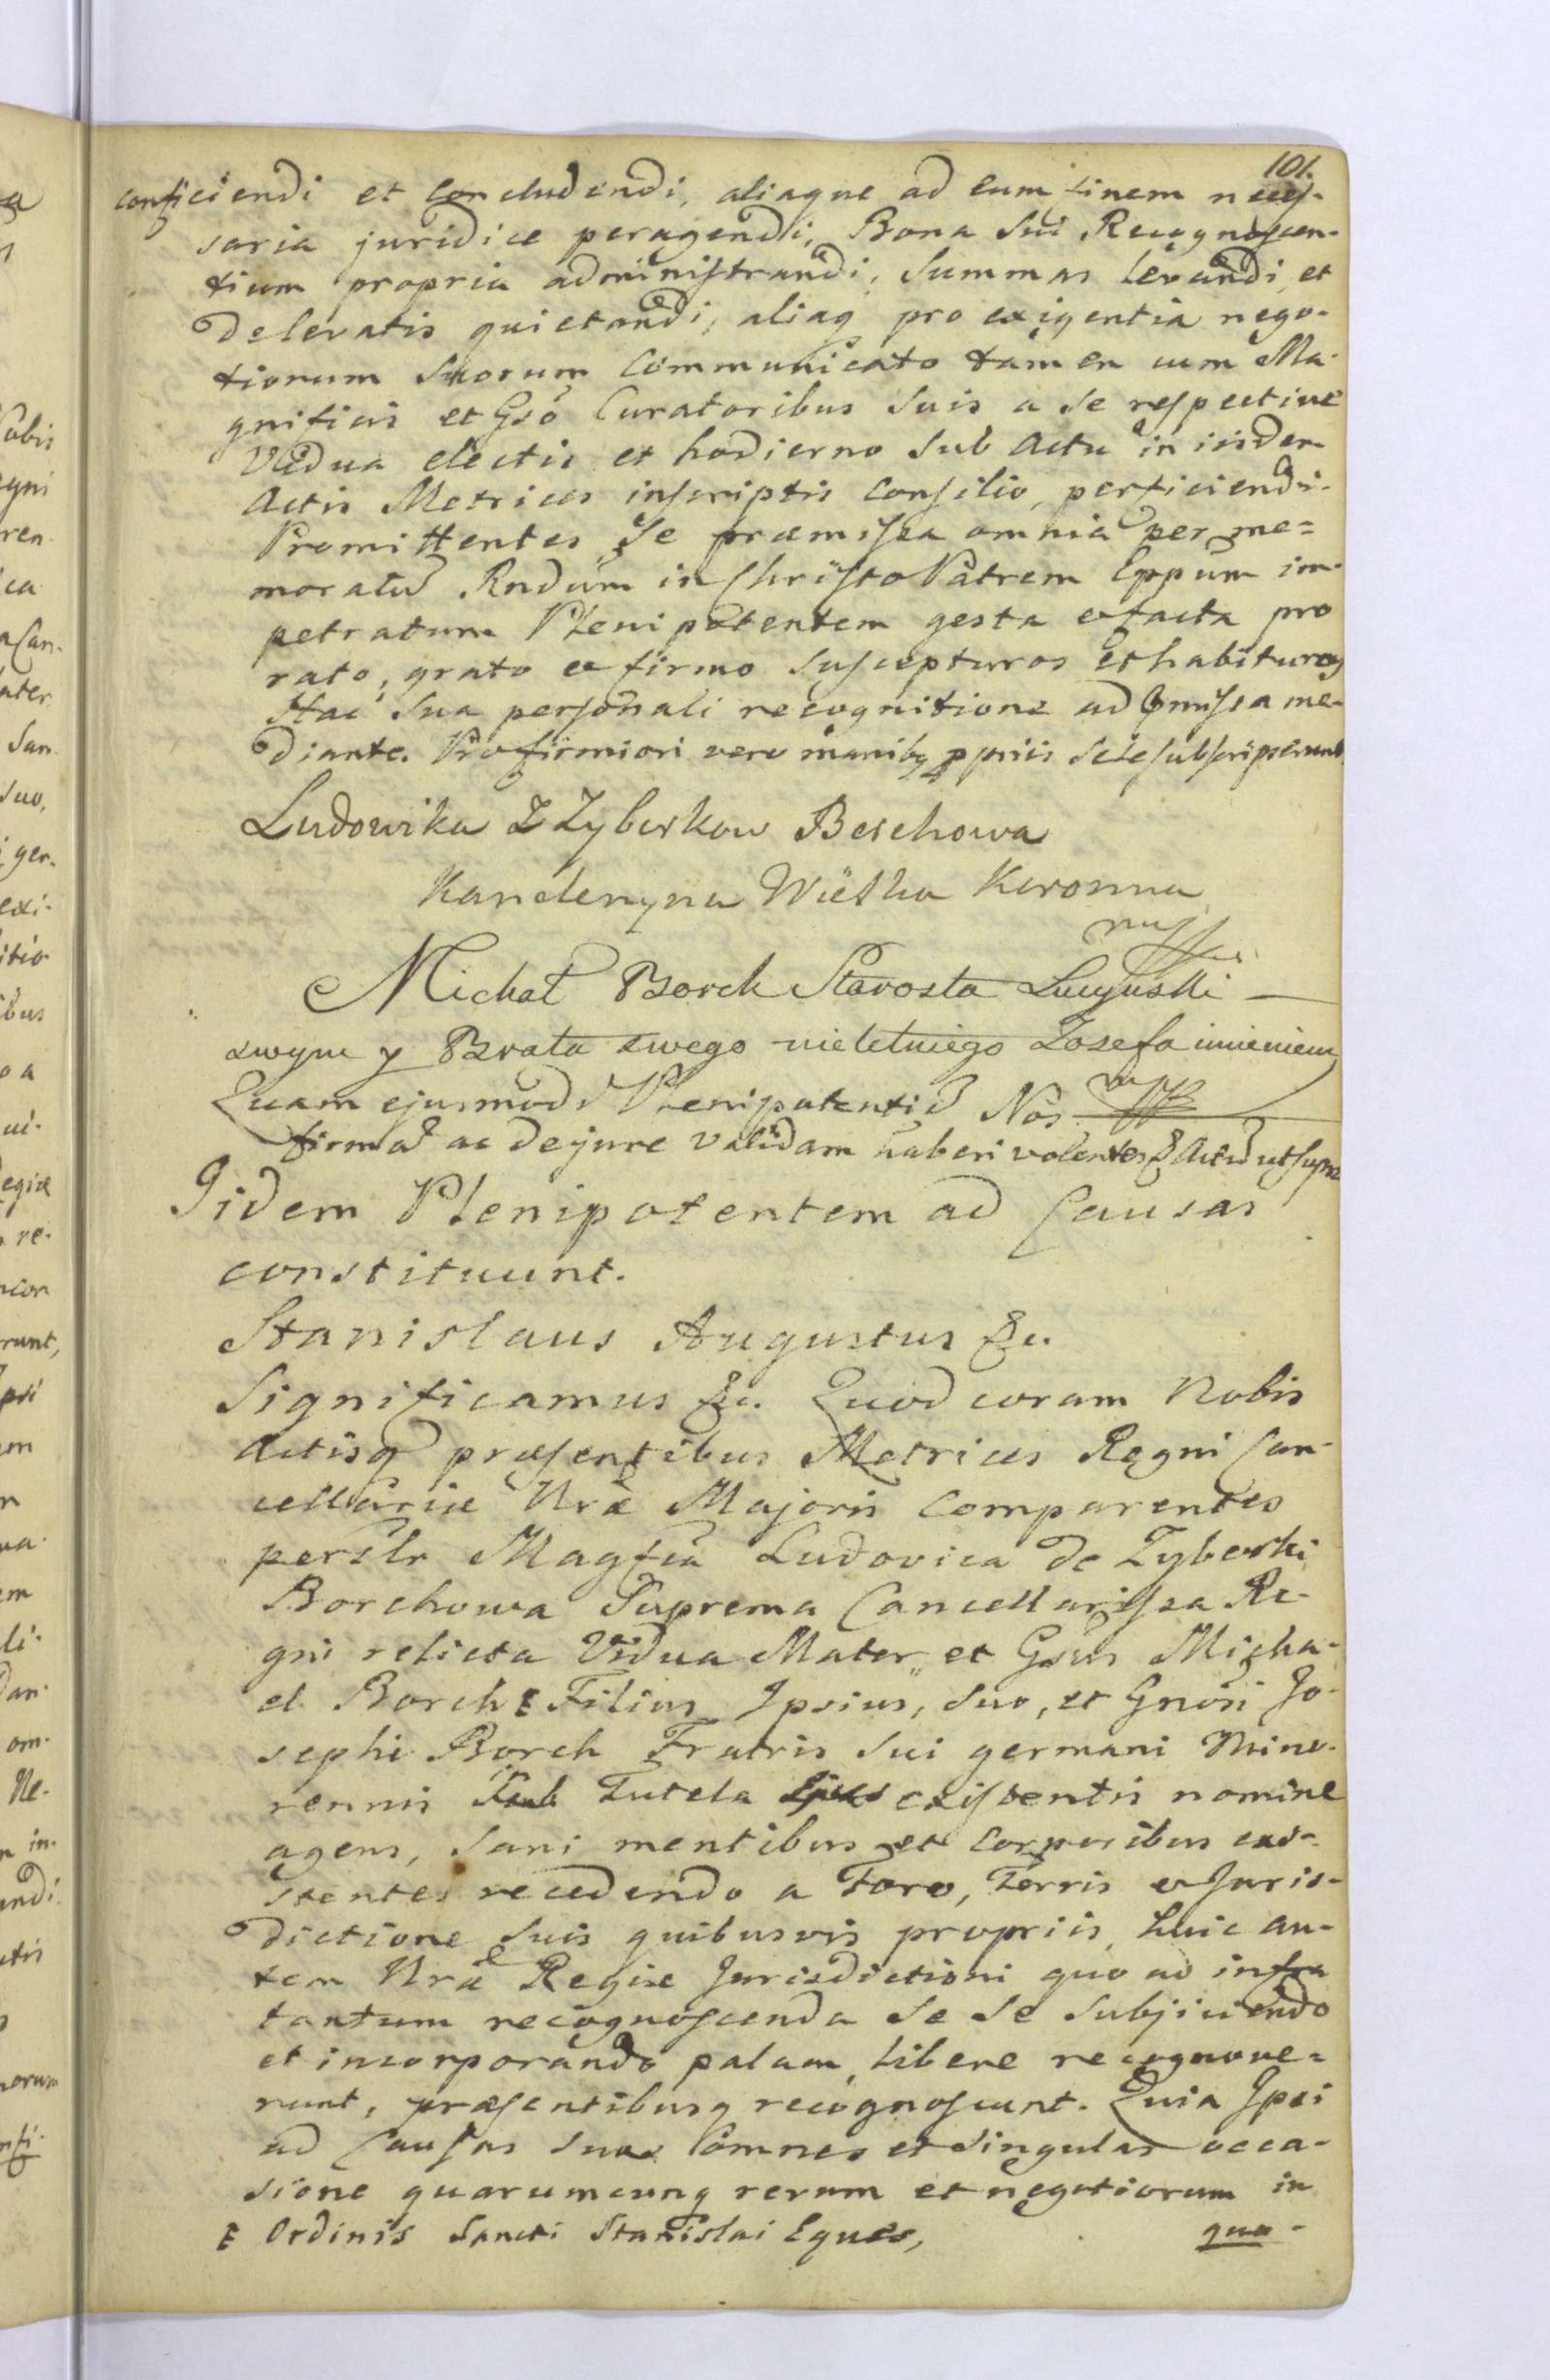 101.
conficiendi et concludendi, aliaque ad eum finem neces-
saria juridice peragendi, Bona sui Recognoscen-
tium propria administrandi, Summas levandi, et
de levatis quietandi, aliaq pro exigentia nego-
tiorum Suorum Communicato tamen cum Ma-
gnificis et Gso Curatoribus Suis a se respective
Vidua electis et hodierno Sub Actu in iisdem
Actis Metrices inscriptis Consilio, perficiendi.
Promittentes Se præmissa omnia per me=
moratũ Rndum in Christo Patrem Eppum im-
petratum Plenipotentem gesta et facta pro
rato, grato et firmo Suscepturos et habituros
Hac Sua personali recognitione ad pmissa me-
diante. Pro firmiori vero manibq ppriis Sese subscripserunt
Ludowika Z Zyberkow Borchowa
Kanclerzyna Wielka Koronna
mpp
Michał Borch Starosta Lucyński —
swym y Brata swego nieletniego Iozefa imieniem
mpp
Quam ejusmodi Plenipotentiã Nos
firmã ac de jure Validam haberi volentes &c Actũ ut supra
Iidem Plenipotentem ad Causas
constituunt.
Stanislaus Augustus &c.
Significamus &c. Quod coram Nobis
Actisq præsentibus Metrices Regni Can-
cellariæ Nræ Majoris Comparentes
persłr Magfca Ludovica de Zyberki
Borchowa Suprema Cancellarissa Re-
gni relicta Vidua Mater, et Gsus Micha-
el Borch Ɛ Filius Ipsius, Suo, et Gnosi Jo-
sephi Borch Fratris Sui germani Mino-
rennis in Tutela existentis nomine
agens, Sani mentibus et Corporibus exi-
stentes recedendo a Foro, Terris et Juris-
dictione Suis quibusvis propriis, huic au-
tem Nræ Regiæ Jurisdictioni quo ad infra
tantum recognoscenda Se Se Subjiciendo
et incorporando palam, libere recognove=
runt, præsentibusq recognoscunt. Quia Ipsi
ad Causas Suas omnes et Singulas occa-
sione quarumcunq rerum et negotiorum in
Ɛ Ordinis Sancti Stanislai Eques,
qua-